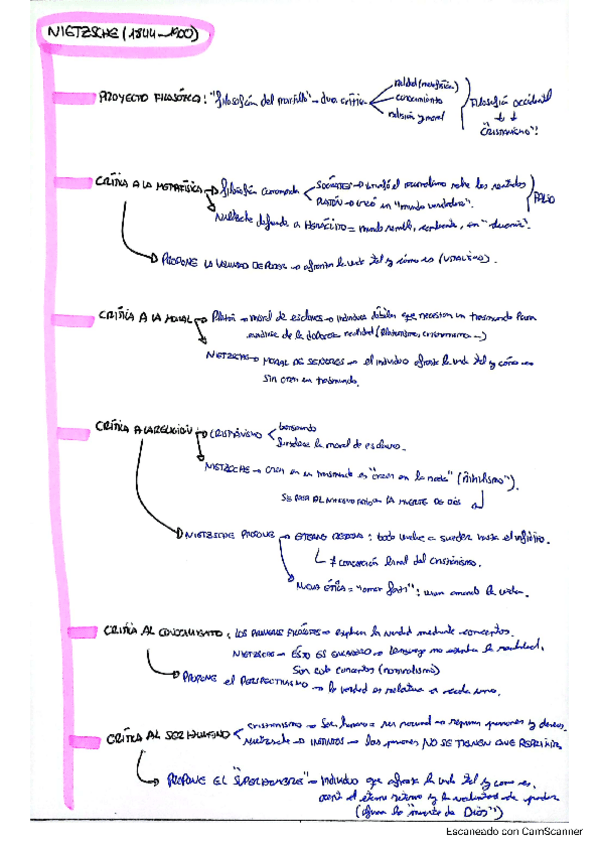 NIETZSCHE (1844-1900)
realidad (metafísica)
PROYECTO FILOSÓFICO: "filosofía del martillo" - dura crítica conocimiento Filosofía occidental
religión y moral "CRISTIANISMO"!
CRÍTICA A LA METAFÍSICA filosofía SÓCRATES el racionalismo sobre los sentidos
PLATÓN creó un "mundo verdadero".
Nietzsche defiende a HERÁCLITO = mundo cambiante, en "devenir".
PROPONE LA VOLUNTAD DE PODER afrontar la vida tal y cómo es (VITALISMO).
CRÍTICA A LA MORAL Platón moral de esclavos individuos débiles que necesitan un trasmundo para
de la dolorosa realidad (Platonismo, cristianismo...)
NIETZSCHE MORAL DE SEÑORES el individuo afronta la vida tal y cómo es
sin creer en trasmundo.
CRÍTICA A LA RELIGIÓN CRISTIANISMO trasmundo
la moral de esclavos.
NIETZSCHE creer en un trasmundo es "creer en la nada" (nihilismo").
LA MUERTE DE DIOS
NIETZSCHE PROPONE ETERNO RETORNO: todo vuelve a suceder hasta el infinito.
≠ concepción lineal del cristianismo.
NUEVA ÉTICA = "amor fati": vivir amando la vida.
CRÍTICA AL CONOCIMIENTO: LOS PRIMEROS FILÓSOFOS explican la verdad mediante conceptos.
NIETZSCHE ESTO ES lenguaje no la realidad.
Son solo conceptos (nominalismo)
PROPONE el PERSPECTIVISMO la verdad es relativa a cada uno.
CRÍTICA AL SER HUMANO CRISTIANISMO Ser humano = ser racional reprimir pasiones y deseos.
NIETZSCHE INSTINTOS las pasiones NO SE TIENEN QUE REPRIMIR
PROPONE EL "SUPERHOMBRE" individuo que afronta la vida tal y como es,
el eterno retorno y la voluntad de poder
la "muerte de Dios")
Escaneado con CamScanner